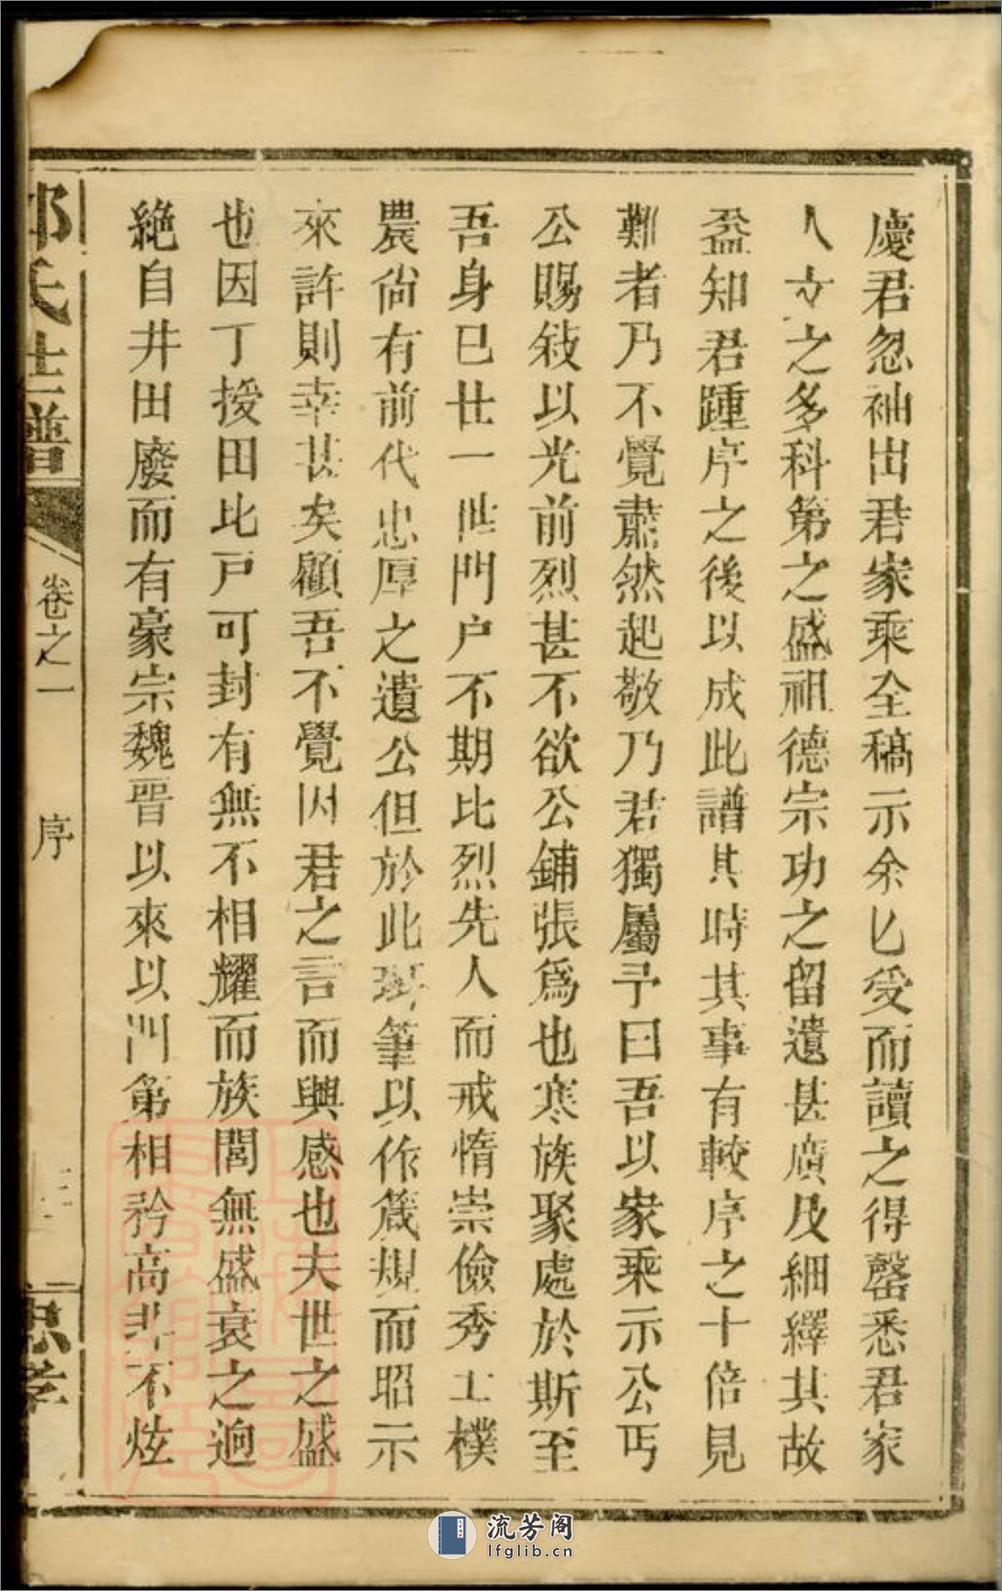 慶君忽袖出君家乘全稿示余余受而讀之得罄悉君家
人文之多科第之盛祖德宗功之留遺甚廣及細繹其故
益知君踵序之後以成此譜其時其事有較序之十倍見
難者乃不覺肅然起敬乃君獨屬予曰吾以家乘示公丐
公賜敍以光前烈甚不欲公鋪張為也寒族聚處於斯至
吾身已廿一世門户不期比烈先人而戒惰崇儉秀工樸
農尙有前代忠厚之遺公但於此班筆以作箴規而昭示
來許則幸甚矣顧吾不覺因君之言而興感也夫世之盛
也因丁授田比戸可封有無不相耀而族閭無盛衰之逈
絶自井田廢而有豪宗魏晋以來以門第相矜高非不炫
氏世譜
卷之一
序
忠孝
流芳阁
lfglib.cn